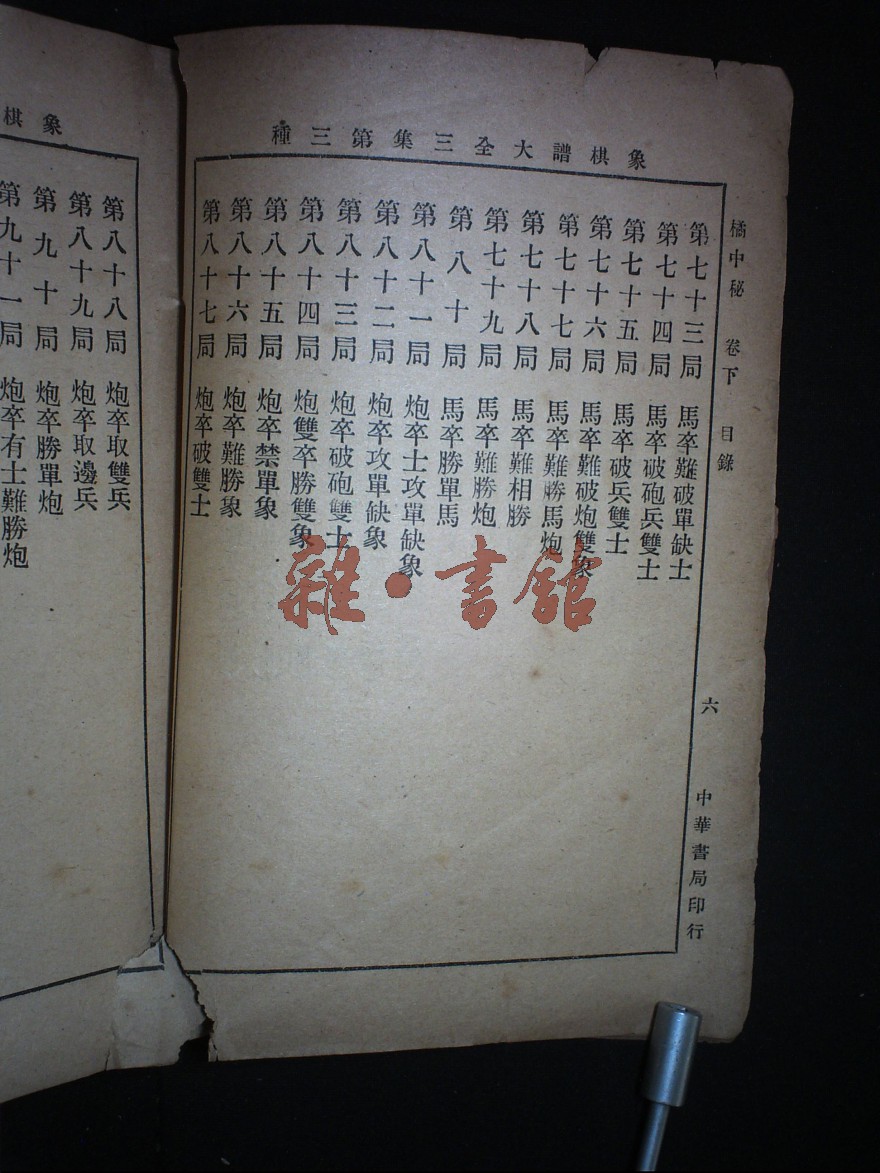 象棋譜大全三集第三種
橘中秘 卷下 目錄 六 中華書局印行
第七十三局 馬卒難破單缺士
第七十四局 馬卒破砲兵雙士
第七十五局 馬卒破兵雙士
第七十六局 馬卒難破炮雙象
第七十七局 馬卒難勝馬炮
第七十八局 馬卒難相勝
第七十九局 馬卒難勝炮
第八十局 馬卒勝單馬
第八十一局 炮卒士攻單缺象
第八十二局 炮卒攻單缺象
第八十三局 炮卒破砲雙士
第八十四局 炮雙卒勝雙象
第八十五局 炮卒禁單象
第八十六局 炮卒難勝象
第八十七局 炮卒破雙士
象棋
第八十八局 炮卒取雙兵
第八十九局 炮卒取邊兵
第九十局 炮卒勝單炮
第九十一局 炮卒有士難勝炮
雜·書館